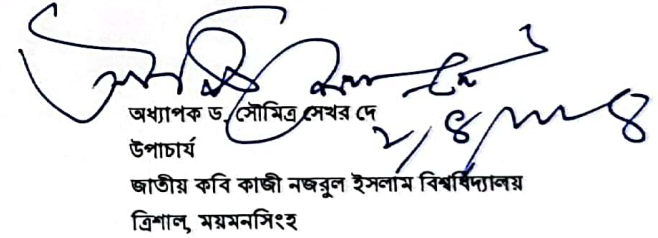 অধ্যাপক ড. সৌমিত্র সেখর দে
উপাচার্য
জাতীয় কবি কাজী নজরুল ইসলাম বিশ্ববিদ্যালয়
ত্রিশাল, ময়মনসিংহ